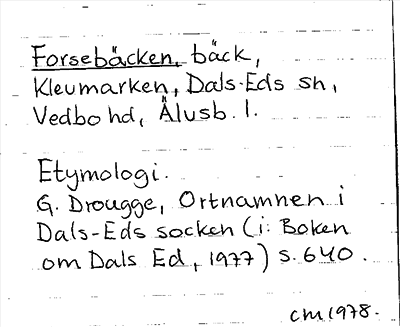 Forsebäcken, bäck,
Kleumarken, Dals-Eds sn,
Vedbo hd, Älvsb. l.
Etymologi.
G. Drougge, Ortnamnen i
Dals-Eds socken (i: Boken
om Dals Ed, 1977) s. 640.
CM 1978.